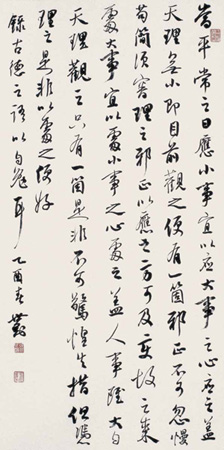 當平常之日應小事宜以應大事之心應之蓋
天理無小即目前觀之便有一箇邪正不可忽慢
苟簡須審理之邪正以應之方可及變故之來
處大事宜以處小事之心處之蓋人事雖大自
天理觀之只有一箇是非不可驚惶失措但憑
理之是非以處之便好
錄古德之語以自勉耳 乙酉春